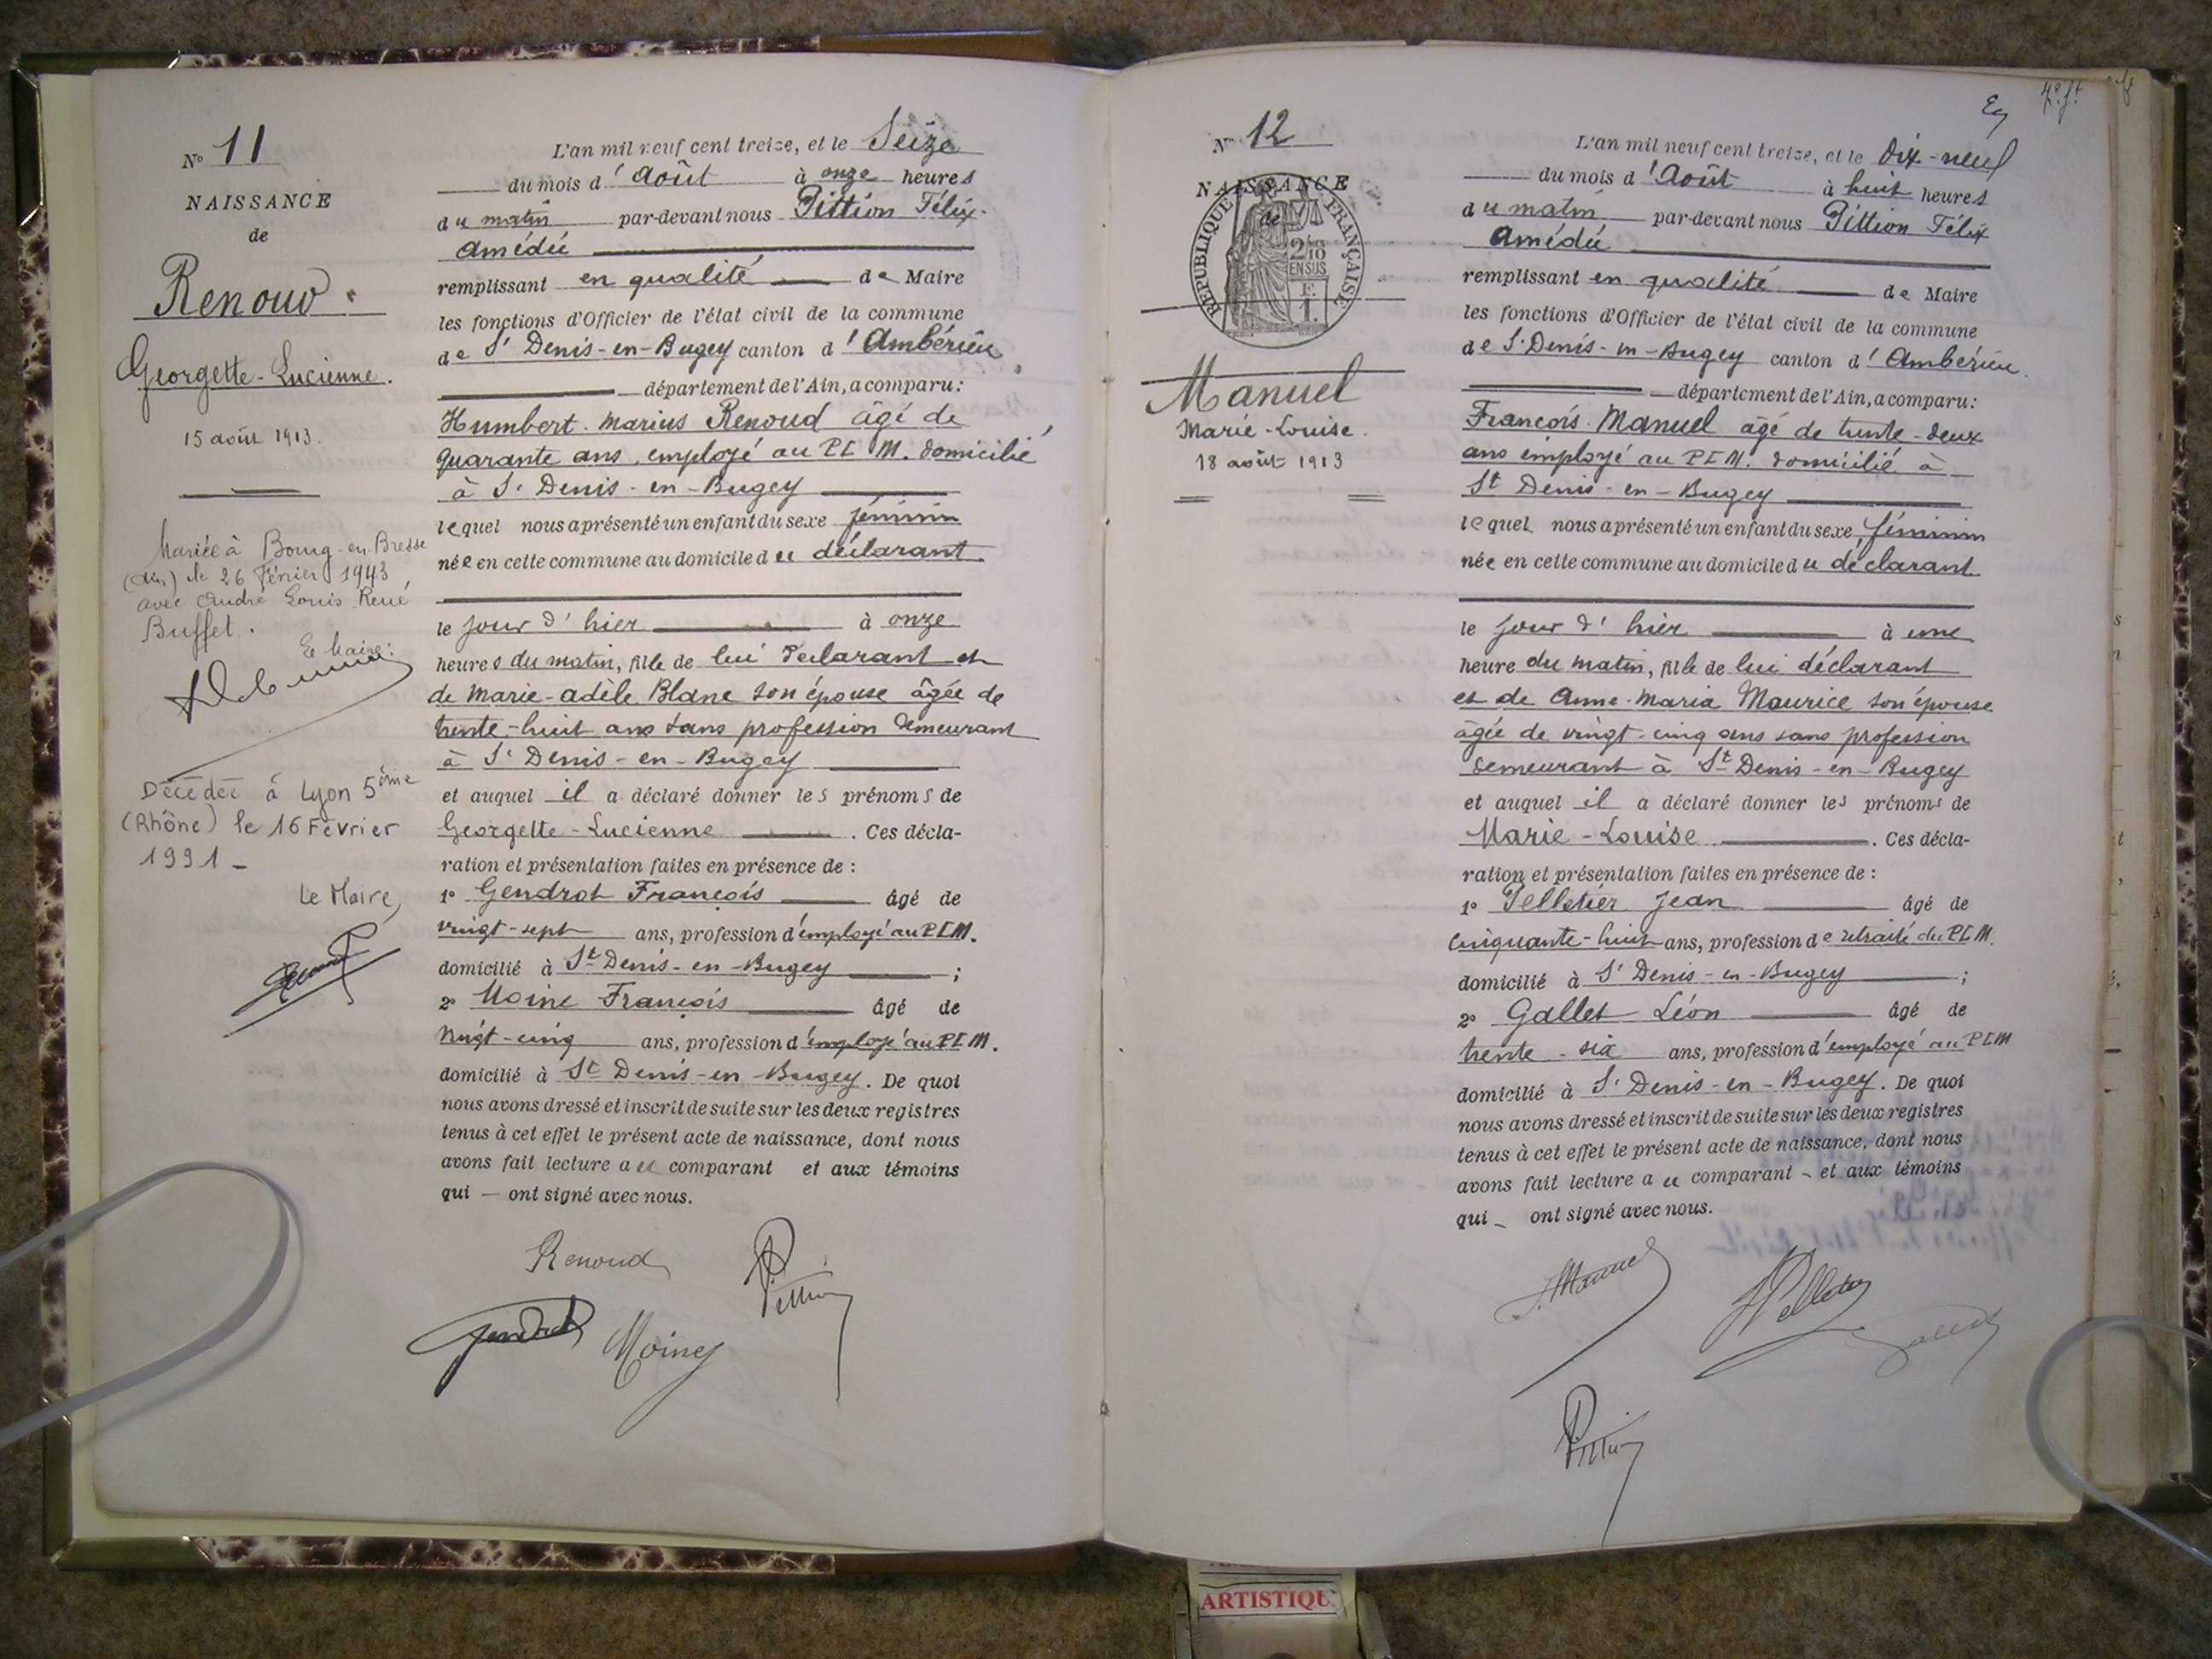 N° 11
NAISSANCE
de
Renoud
Georgette-Lucienne.
15 août 1913.
Mariée à Bourg-en-Bresse
(Ain) le 26 Février 1943
avec André Louis René
Buffet.
Le Maire:
Décédée à Lyon 5ème
(Rhône) le 16 Février
1991 -
Le Maire,
L'an mil neuf cent treize, et le Seize
du mois d'Août à onze heures
du matin par-devant nous Pittion Félix-
Amédée
remplissant en qualité de Maire
les fonctions d'Officier de l'état civil de la commune
de St Denis-en-Bugey canton d'Ambérieu
département de l'Ain, a comparu:
Humbert-Marius Renoud âgé de
quarante ans, employé au PLM. domicilié
à St Denis-en-Bugey
lequel nous a présenté un enfant du sexe féminin
née en cette commune au domicile du déclarant
le jour d'hier à onze
heures du matin, fille de lui déclarant et
de Marie-Adèle Blanc son épouse âgée de
trente-huit ans sans profession demeurant
à St Denis-en-Bugey
et auquel il a déclaré donner les prénoms de
Georgette-Lucienne. Ces décla-
ration et présentation faites en présence de :
1° Gendrot François âgé de
vingt-sept ans, profession d'employé au PLM.
domicilié à St Denis-en-Bugey ;
2° Moine François âgé de
vingt-cinq ans, profession d'employé au PLM.
domicilié à St Denis-en-Bugey. De quoi
nous avons dressé et inscrit de suite sur les deux registres
tenus à cet effet le présent acte de naissance, dont nous
avons fait lecture au comparant et aux témoins
qui — ont signé avec nous.
Renoud
Pittion
Gendrot
Moine
N° 12
NAISSANCE
de
RÉPUBLIQUE FRANÇAISE
2/10
EN SUS
F.
1.
Manuel
Marie-Louise.
18 août 1913
L'an mil neuf cent treize, et le dix-neuf
du mois d'Août à huit heures
du matin par-devant nous Pittion Félix
Amédée
remplissant en qualité de Maire
les fonctions d'Officier de l'état civil de la commune
de St Denis-en-Bugey canton d'Ambérieu.
département de l'Ain, a comparu:
François Manuel âgé de trente-deux
ans employé au PLM. domicilié à
St Denis-en-Bugey
lequel nous a présenté un enfant du sexe féminin
née en cette commune au domicile du déclarant
le jour d'hier à une
heure du matin, fille de lui déclarant
et de Anne-Maria Maurice son épouse
âgée de vingt-cinq ans sans profession
demeurant à St Denis-en-Bugey
et auquel il a déclaré donner les prénoms de
Marie-Louise. Ces décla-
ration et présentation faites en présence de :
1° Pelletier Jean âgé de
cinquante-huit ans, profession de retraité du PLM.
domicilié à St Denis-en-Bugey ;
2° Gallet Léon âgé de
trente-six ans, profession d'employé au PLM
domicilié à St Denis-en-Bugey. De quoi
nous avons dressé et inscrit de suite sur les deux registres
tenus à cet effet le présent acte de naissance, dont nous
avons fait lecture au comparant - et aux témoins
qui - ont signé avec nous.
Pelletier
Gallet
Pittion
ARTISTIQU